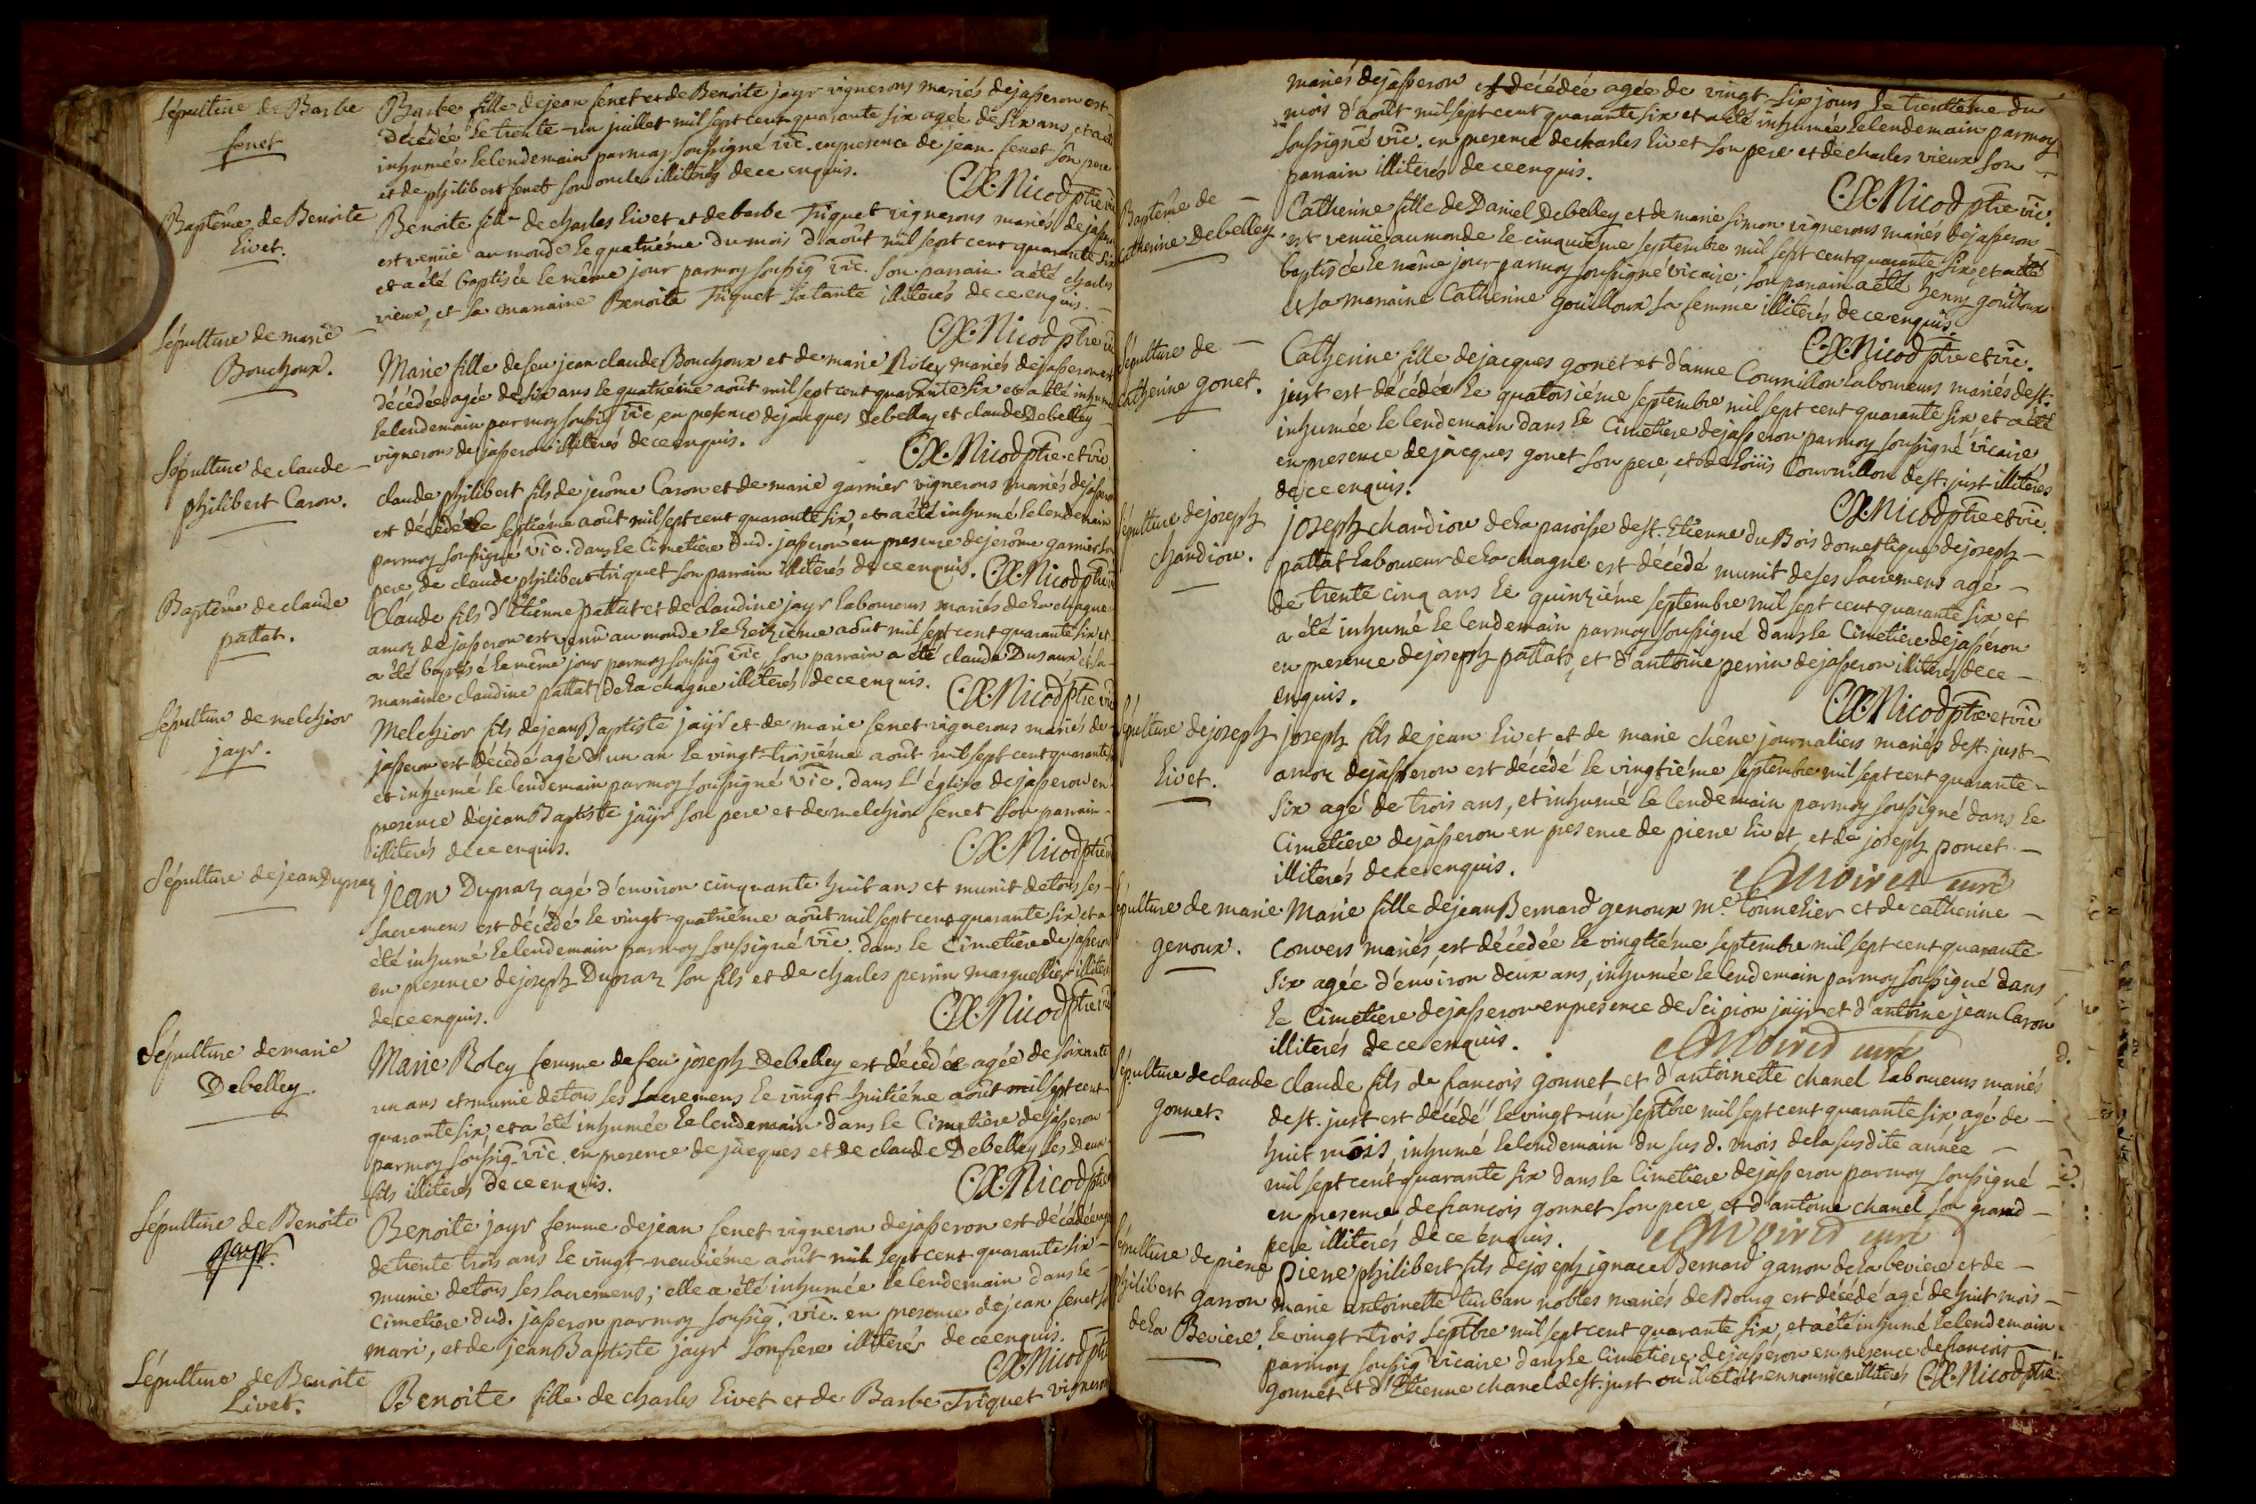 Sépulture de Barbe
fenet
Barbe fille de jean fenet et de Benoite jayr vignerons mariés de jasseron est
décédée le trente-un juillet mil sept cent quarante six agée de six ans, et a eté
inhumée le lendemain par moy soussigné vic. en presence de jean fenet son pere
et de philibert fenet son oncle illiterés de ce enquis.
C.X. Nicod ptre vic
Baptême de Benoite
livet.
Benoite fille de charles livet et de barbe Triquet vignerons mariés de jasseron
est venüe au monde le quatriéme du mois d'août mil sept cent quarante six
et a été baptisée le même jour par moy soussig vic. son parrain a été charles
vieux, et la marraine Benoite Triquet sa tante illiterés de ce enquis.
C.X. Nicod ptre vic
Sépulture de marie
Bouchoux.
Marie fille de feu jean claude Bouchoux et de marie Roley mariés de jasseron est
décédée agée de six ans le quatriéme août mil sept cent quarante six et a été inhumée
le lendemain par moy soussig vic, en presence de jacques Debelley et claude Debelley
vigneron de jasseron illiterés de ce enquis.
C.X. Nicod ptre et vic
Sépulture de claude
philibert Caron.
claude philibert fils de jerôme Caron et de marie garnier vignerons mariés de jasseron
est décédé le septiéme août mil sept cent quarante six, et a été inhumé le lendemain
par moy soussigné vic. dans le Cimetiere dud. jasseron en presence de jerôme garnier son
pere de claude philibert triquet son parrain illiterés de ce enquis. C.X. Nicod ptre vic
Baptême de claude
pattat.
Claude fils d'Etienne pattat et de claudine jayr laboureurs mariés de la chagne
amoz de jasseron est venu au monde le treiziéme août mil sept cent quarante six et
a été baptisé le même jour par moy soussig vic son parrain a été claude Dusaux et la
marraine claudine pattat de la chagne illiterés de ce enquis. C.X. Nicod ptre vic
Sépulture de melchior
jayr.
Melchior fils de jean Baptiste jayr et de marie fenet vignerons mariés de
jasseron est décédé agé d'un an le vingt-troisiéme août mil sept cent quarante six
et inhumé le lendemain par moy soussigné vic. dans l'église de jasseron en
presence de jean Baptiste jayr son pere et de melchior fenet son parrain
illiterés de ce enquis.
C.X. Nicod ptre vic
Sépulture de jean Dupraz
jean Dupraz agé d'environ cinquante huit ans et munit de tous ses
sacremens est décédé le vingt-quatriéme août mil sept cent quarante six et a
été inhumé le lendemain par moy soussigné vic. dans le Cimetiere de jasseron
en presence de joseph Dupraz son fils et de charles perrin marguellier illiterés
de ce enquis.
C.X. Nicod ptre vic
Sépulture de marie
Debelley.
Marie Roley femme de feu joseph Debelley est décédée agée de soixante
un ans et munie de tous ses sacremens le vingt-huitiéme août mil sept cent
quarante six, et a été inhumée le lendemain dans le Cimetiere de jasseron
par moy soussig. vic. en presence de jacques et de claude Debelley ses deux
fils illiterés de ce enquis.
C.X. Nicod ptre
Sépulture de Benoite
jayr.
Benoite jayr femme de jean fenet vigneron de jasseron est décédée agée
de trente trois ans le vingt-neuviéme août mil sept cent quarante six
munie de tous ses sacremens; elle a été inhumée le lendemain dans le
Cimetiere dud. jasseron par moy soussig. vic. en presence de jean fenet son
mari, et de jean Baptiste jayr son frere illiterés de ce enquis.
C.X. Nicod ptre
Sépulture de Benoite
Livet.
Benoite fille de charles livet et de Barbe Triquet vignerons
mariés de jasseron est décédée agée de vingt-six jours le trentiéme du
mois d'août mil sept cent quarante six et a été inhumée le lendemain par moy
soussigné vic. en presence de charles livet son pere et de charles vieux son
parrain illiterés de ce enquis.
C.X. Nicod ptre vic.
Baptême de
Catherine Debelley.
Catherine fille de Daniel Debelley et de marie simon vignerons mariés de jasseron
est venüe au monde le cinquiéme septembre mil sept cent quarante six, et a été
baptisée le même jour par moy soussigné vicaire; son parrain a été henry gouilloux
et sa marraine Catherine gouilloux sa femme illiterés de ce enquis.
C.X. Nicod ptre et vic.
Sépulture de
Catherine gonet.
Catherine fille de jacques gonet et d'anne Cournillon laboureurs mariés de st.
just est décédée le quatorsiéme septembre mil sept cent quarante six et a été
inhumée le lendemain dans le Cimetiere de jasseron par moy soussigné vicaire
en presence de jacques gonet son pere, et de loüis Cournillon de st. just illiterés
de ce enquis.
C.X. Nicod ptre et vic.
Sépulture de joseph
chandiou.
joseph chandiou de la paroisse de st. Etienne du Bois domestique de joseph
pattat laboureur de la chagne est décédé munit de ses sacremens agé
de trente cinq ans le quinziéme septembre mil sept cent quarante six et
a été inhumé le lendemain par moy soussigné dans le Cimetiere de jasseron
en presence de joseph pattat, et d'antoine perrin de jasseron illiterés de ce
enquis.
C.X. Nicod ptre et vic
Sépulture de joseph
livet.
joseph fils de jean livet et de marie chêne journaliers mariés de st. just
amoz de jasseron est décédé le vingtiéme septembre mil sept cent quarante
six agé de trois ans, et inhumé le lendemain par moy soussigné dans le
Cimetiere de jasseron en presence de pierre livet, et de joseph poncet
illiterés de ce enquis.
curé
Sépulture de marie
genoux.
Marie fille de jean Bernard genoux me. tonnelier et de catherine
Convers mariés, est décédée le vingtiéme septembre mil sept cent quarante
six agée d'environ deux ans, inhumée le lendemain par moy soussigné dans
le Cimetiere de jasseron en presence de scipion jayr et d'antoine jean Caron
illiterés de ce enquis.
curé
Sépulture de claude
gonnet.
claude fils de francois gonnet et d'antoinette chanel laboureurs mariés
de st. just est décédé le vingt-un septbre mil sept cent quarante six, agé de
huit mois, inhumé le lendemain du sus d. mois de la susdite année
mil sept cent quarante six dans le Cimetiere de jasseron par moy soussigné
en presence de francois gonnet son pere, et d'antoine chanel son grand
pere illiterés de ce enquis.
curé
Sépulture de pierre
philibert garron
de la Beviere.
pierre philibert fils de joseph ignace Bernard garron de la beviere et de
marie antoinette turban nobles mariés de Bourg est décédé agé de huit mois
le vingt-trois septbre mil sept cent quarante six, et a été inhumé le lendemain
par moy soussig vicaire dans le Cimetiere de jasseron en presence de francois
gonnet et d'Etienne chanel de st. just ou il étoit en nourrice illiterés C.X. Nicod ptre